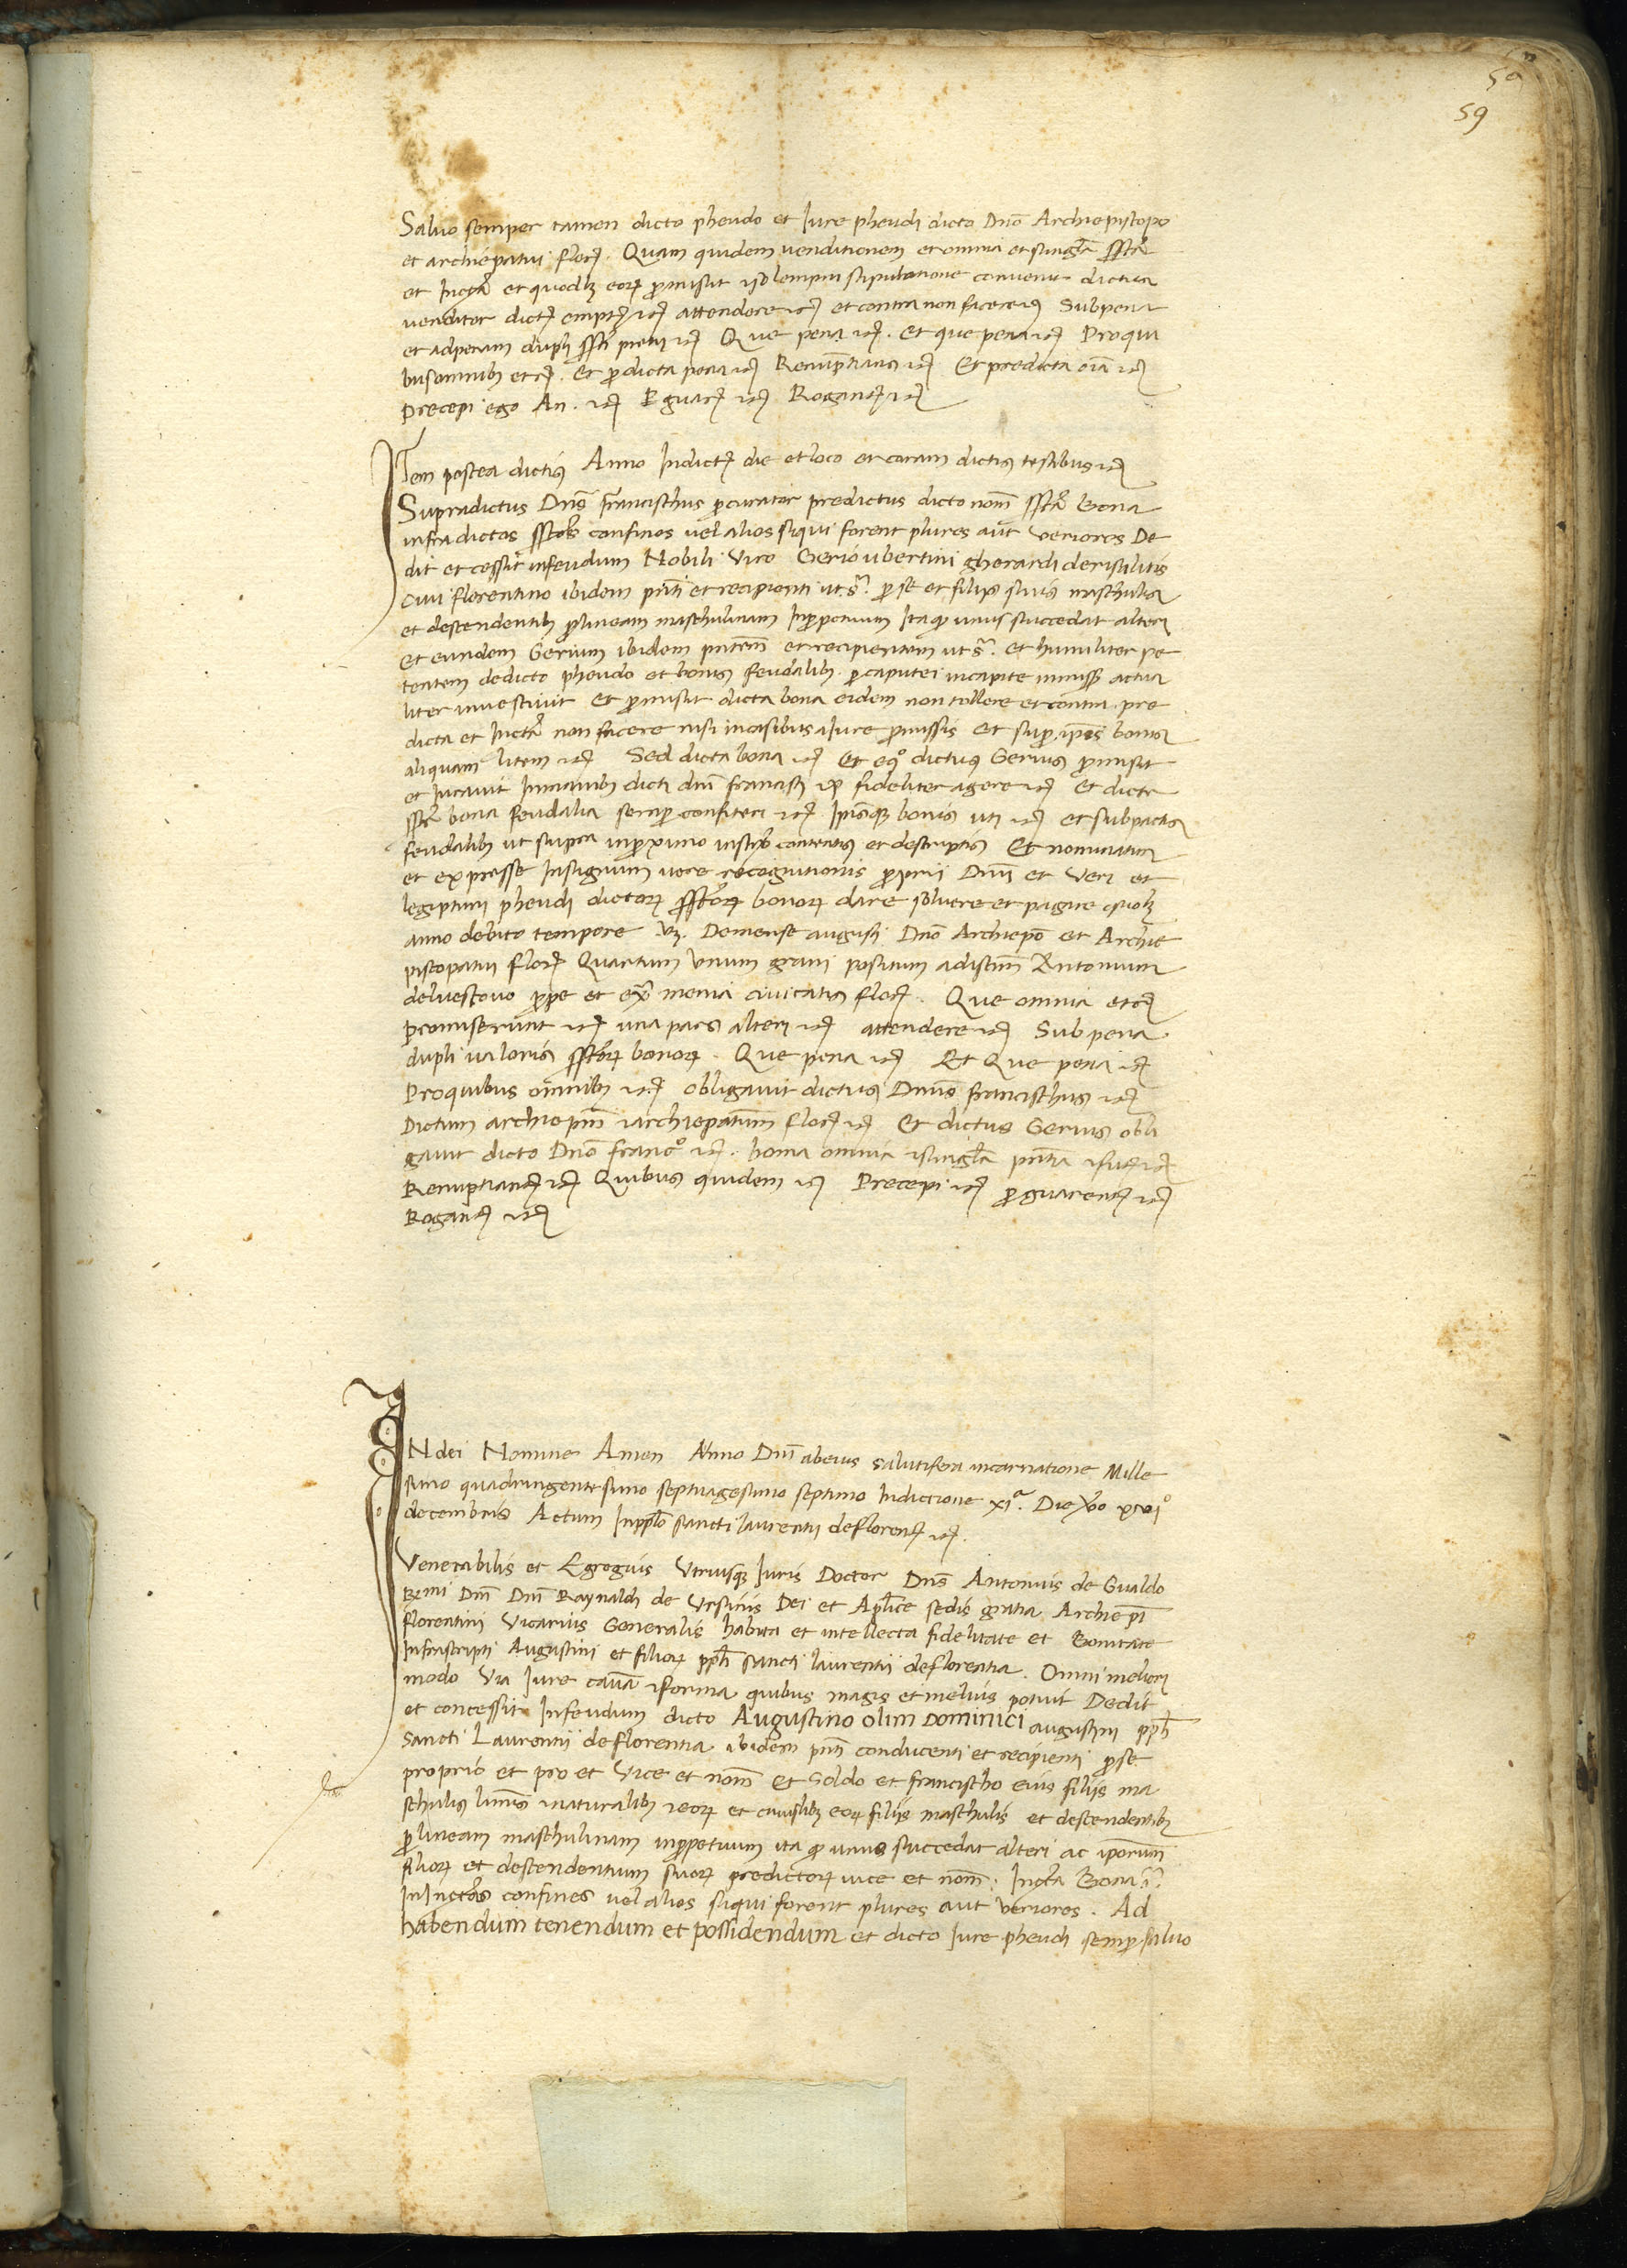 59
59
Salvo semper tamen dicto pheudo et Jure pheudi dicto Dno Archiepiscopo
et archiepatui flor. Quam quidem venditionem et omnia et singla
et et quodlz eorz promisit solempni stipulatione convenit dictus
venditor dict empt etc attendere etc et contra non facere etc Sub pena
et ad penam dupli pretii etc Que pena etc. et que pena etc Pro qui
bus omnibz etc. et pro dicta pena etc Renuptians etc Et predicta oia etc
precepi ego An. etc guar etc Rogant etc
Item postea dictis Anno Indict die et loco et coram dictis testibus etc
Supradictus Dns francischus procurator predictus dicto nom bona
infra dictos confines vel alios siqui forent plures aut veriores De
dit et cessit infeudum Nobili Viro Gerio ubertini gherardi de risalitis
civi florentino ibidem pnti et recipienti ut s. pro se et filiis suis maschulis
et descendentibz pro lineam maschulinam In perpetuum Ita qd unus succedat alteri
et eundem Gerium ibidem pntem et recipientem ut s. et humiliter pe
tentem de dicto pheudo et bonis feudalibz. per caput ei in capite actua
liter investivit et promisit dicta bona eidem non tollere et contra pre
dicta et non facere nisi in casibus a Jure promissis et super ipsis bonis
aliquam litem etc Sed dicta bona etc Et dictus Gerius promisit
et Iuravit In manibz dicti dni francisc fideliter agere etc et dicta
bona feudalia semper confiteri etc Ipisqz bonis uti etc et sub pactis
feudalibz ut supra in proximo contentis et descriptis Et nominatim
et expresse In signum vere recognitionis proprii Dnii et veri et
legiptimi pheudi dictorz bonorz dare solvere et pagare quolz
anno debito tempore vz. De mense augusti Dno Archiepo et Archie
piscopatui flor Quartum unum grani positum ad Antonium
del vescovo prope et menia civitatis flor. Que omnia etc
promiserunt etc una pars alteri etc attendere etc Sub pena
dupli valoris bonorz. Que pena etc Et Que pena etc
Pro quibus omnibz etc obligavit dictus Dnus francischus etc
Dictum archiepm archiepatum flor etc Et dictus Gerius obli
gavit dicto Dno franco etc. bona omnia singla pntia
Renuptiand etc Quibus quidem etc Precepi etc pro guarent etc
Rogant etc
IN dei Nomine Amen Anno Dni ab eius salutifera incarnatione Mille
simo quadringentesimo septuagesimo septimo Indictione xja. Die
decembris Actum In pplo sancti laurentii de florent etc.
Venerabilis et Egregius Utriusqz Iuris Doctor Dns Antonius de Gualdo
Rmi Dni Dni Raynaldi de Ursinis Dei et Aplice sedis gratia Archiepi
florentini Vicarius Generalis habita et intellecta fidelitate et Bonitate
Infrascripti Augustini et filiorz ppli sancti laurentii de florentia. Omni meliori
modo Via Iure causa forma quibus magis et melius potuit Dedit
et concessit Infeudum dicto Augustino olim Dominici augustini ppli
Sancti Laurentii de florentia ibidem pnti conducenti et recipienti pro se
proprio et pro et Vice et nom et Soldo et francischo eius filiis ma
schulis naturalibz eorz et cuiuslibz eorz filiis maschulis et descendentibz
pro lineam maschulinam in perpetuum ita qd unus succedat alteri ac iporum
filiorz et descendentium suorz predictorz vice et nom. Bona
In confines vel alios siqui forent plures aut veriores. Ad
habendum tenendum et possidendum et dicto Jure pheudi semper salvo